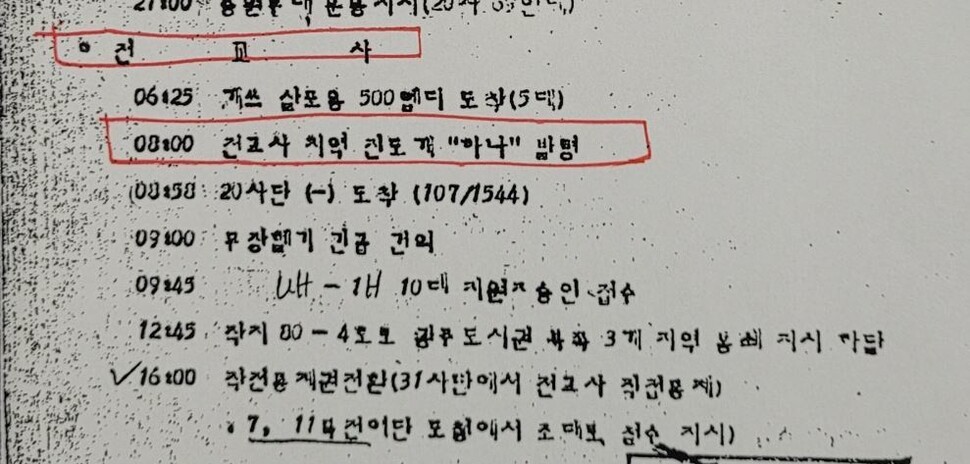 • 전 교 사
06:25 개쓰 살포용 500엠디 도착(5대)
08:00 전교사 지역 진도개 "하나" 발명
(08:58 20사단 (-) 도착 (107/1544)
09:00 무장헬기 긴급 건의
09:45 UH-1H 10대 지원 승인 접수
12:45 작지 80-4호로 광주도시권 3개 지역 봉쇄 지시 하달
✓16:00 작전통제권전환(31사단에서 전교사 작전통제)
• 7, 11 조대로 접수 지시)